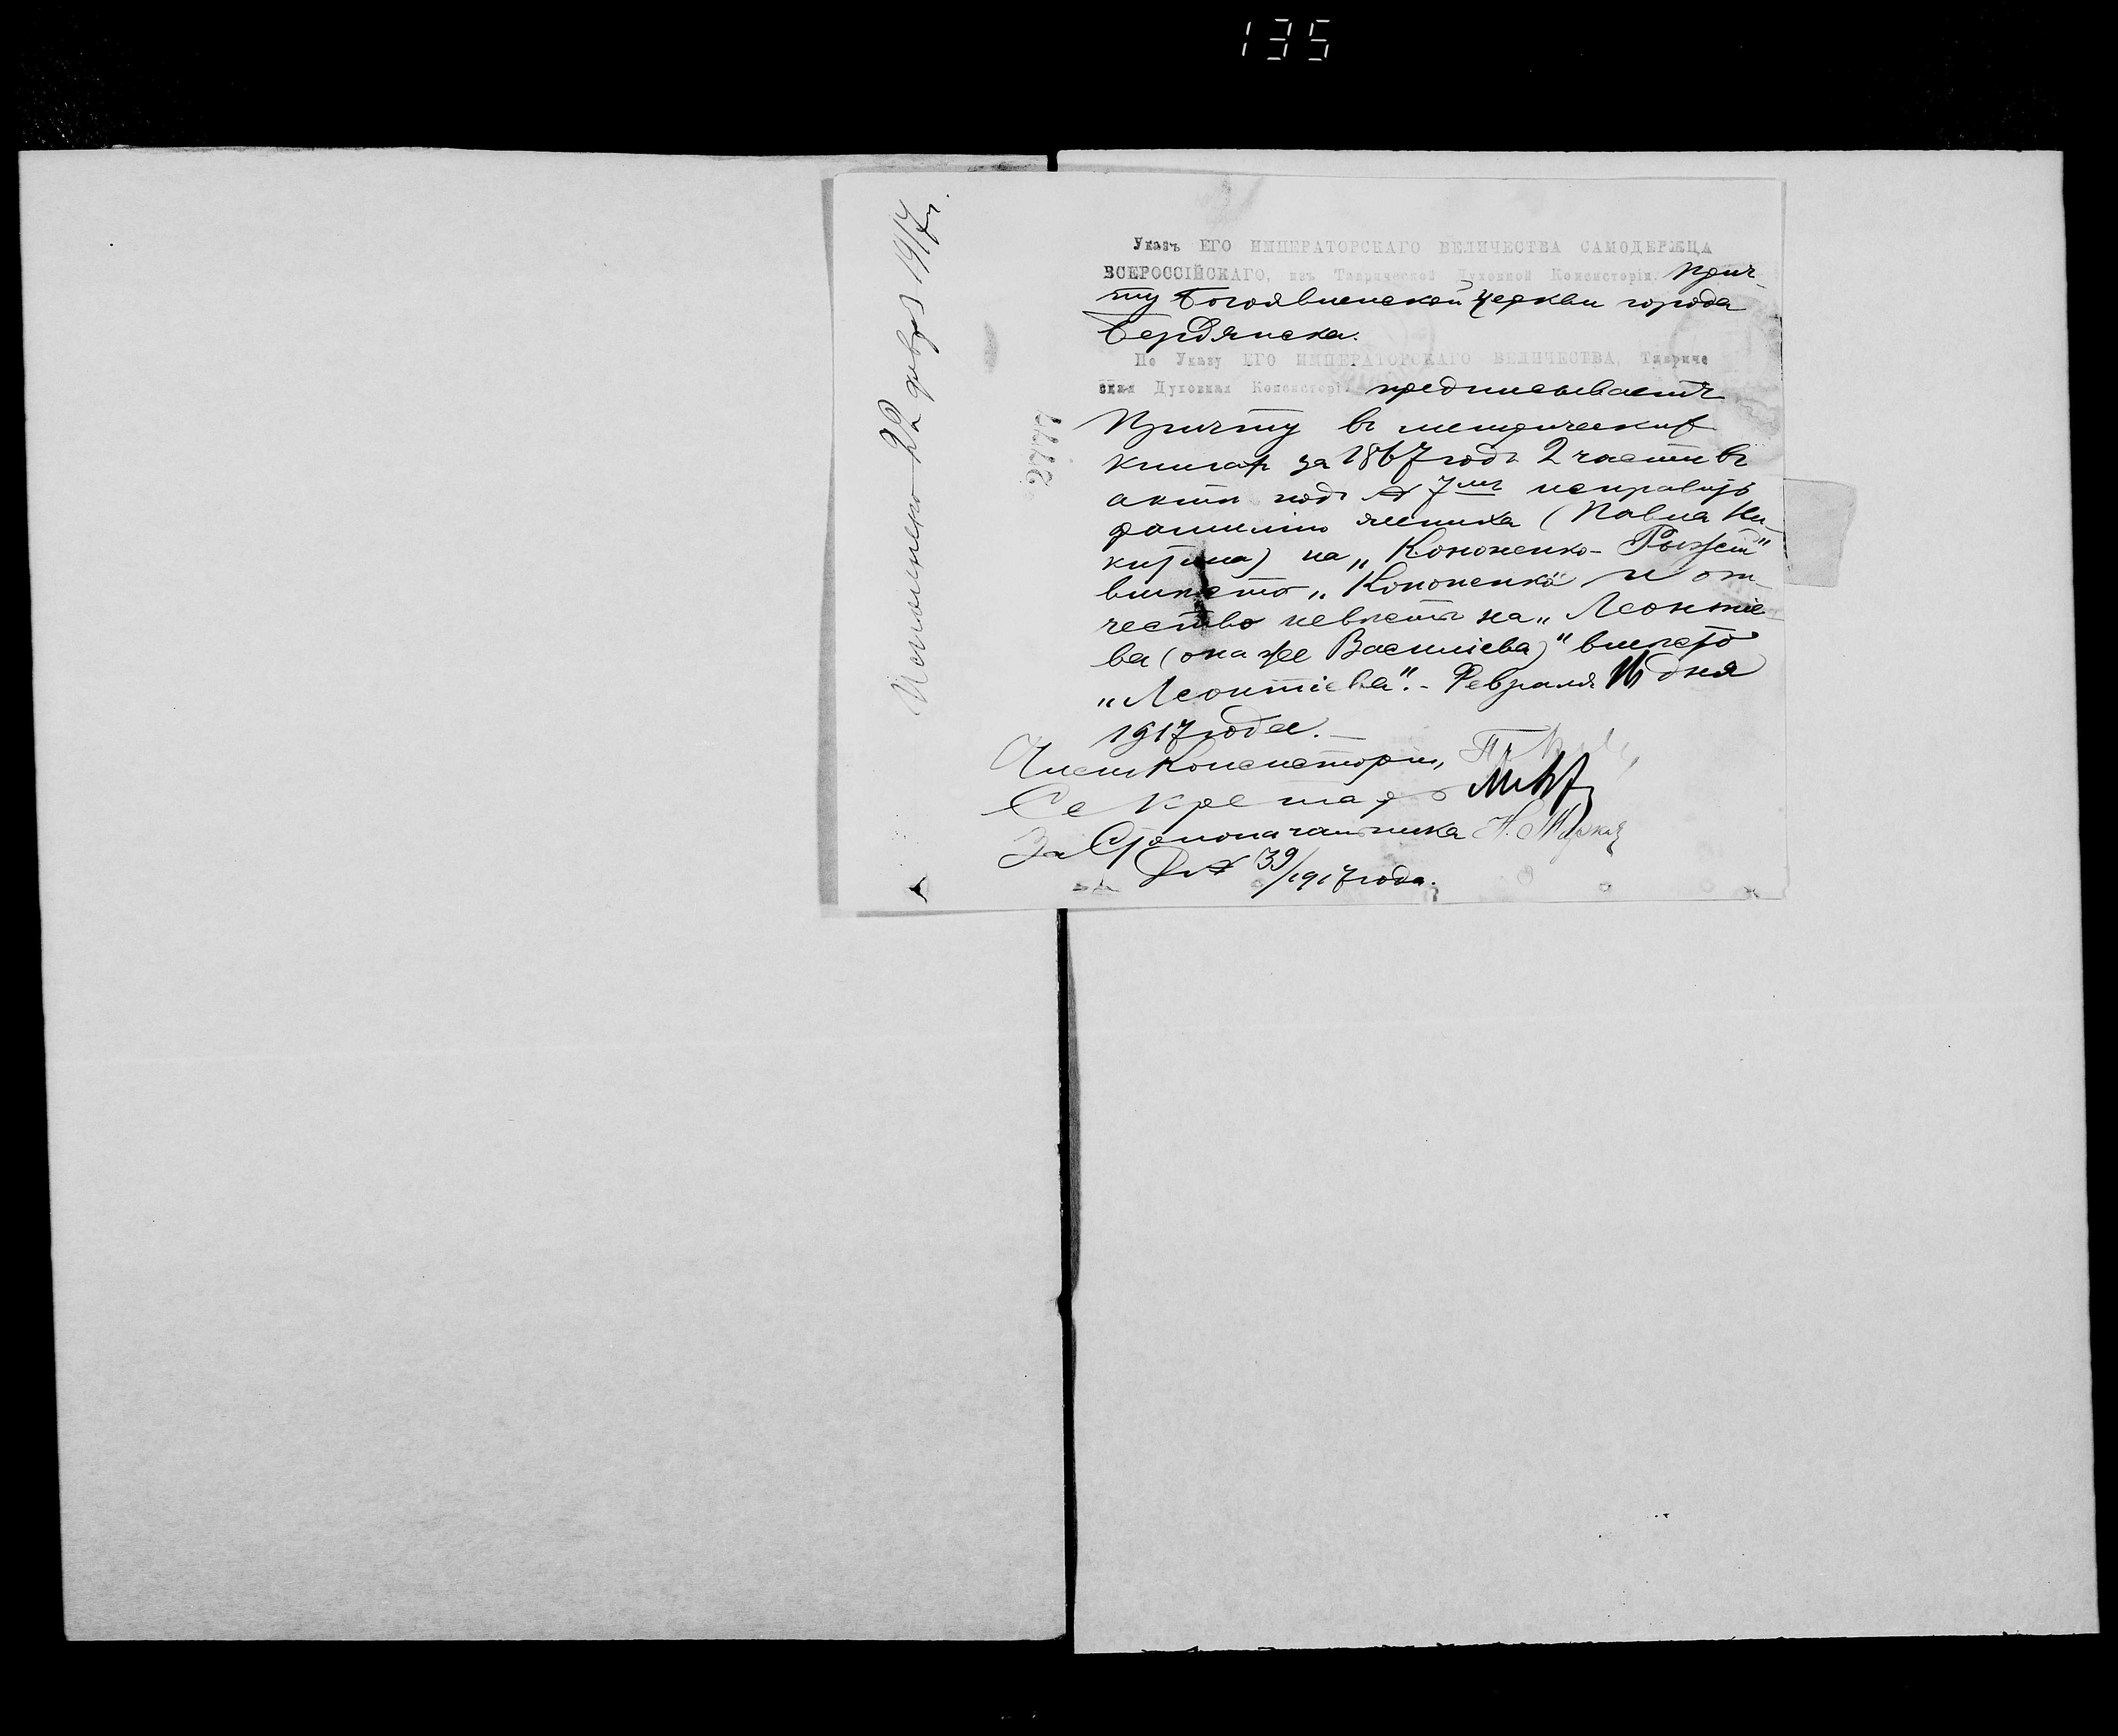 135
Исполнено 22 февр 1917 г.
2777
Указъ ЕГО ИМПЕРАТОРСКАГО ВЕЛИЧЕСТВА САМОДЕРЖЦА
ВСЕРОССІЙСКАГО, изъ Таврической Духовной Консисторіи. Прич-
ту Богоявленской церкви города
Бердянска.
По Указу ЕГО ИМПЕРАТОРСКАГО ВЕЛИЧЕСТВА, Тавриче
ская Духовная Консисторія предписываетъ
Причту въ метрическихъ
книгахъ за 1867 годъ 2 части въ
актѣ подъ № 7мъ исправить
фамилію жениха (Павла Ни-
китина) на „Кононенко-Рыжій"
вмѣсто „Кононенко" и от-
чество невѣсты на „Леонтіе-
ва (она же Василіева)" вмѣсто
„Леонтіева". - Февраля 16 дня
1917 года. -
Членъ Консисторіи,
Секретарь
За Столоначальника Н.
Д. № 39/1917 года.